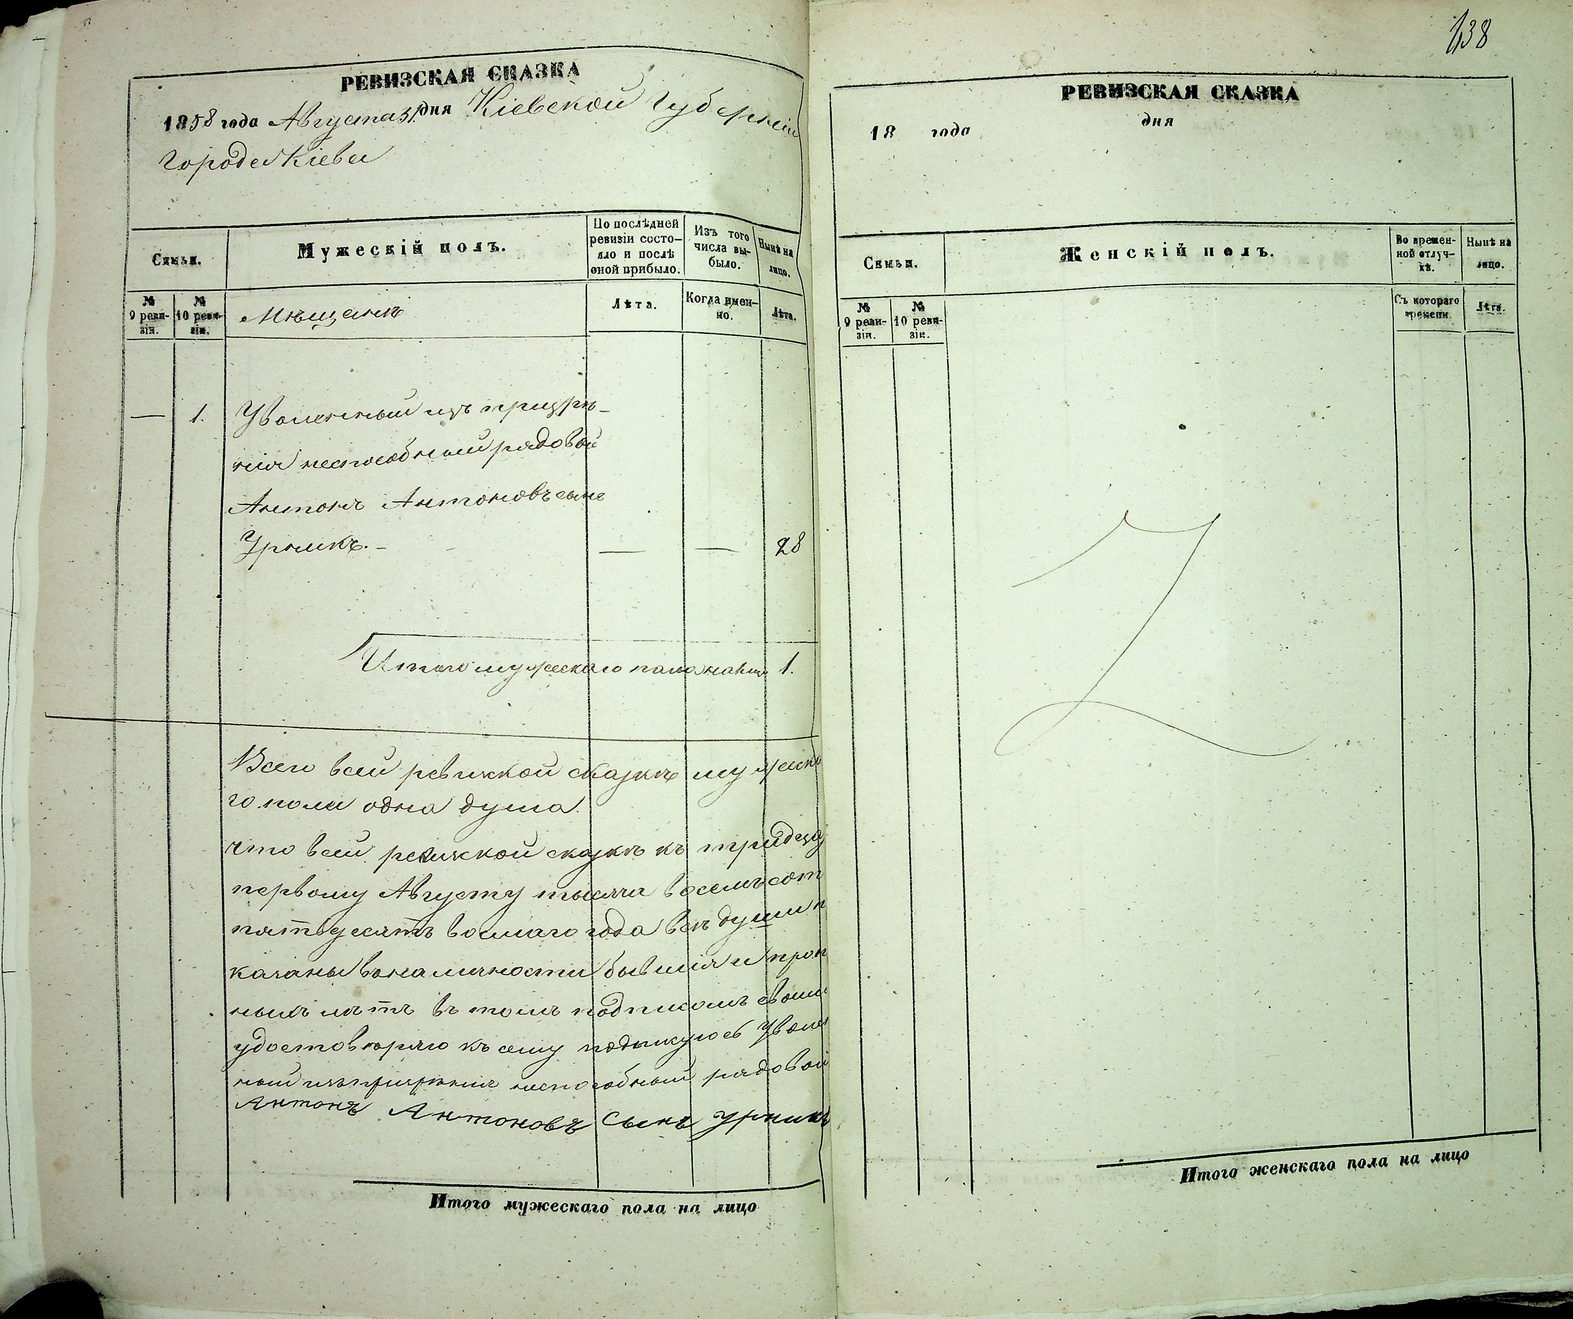 138
РЕВИЗСКАЯ СКАЗКА
1858 года Августа 31 дня Кіевской Губерніи
Города Кіева
Семьи.
Мужескій полъ.
По послѣдней ревизіи состояло и послѣ оной прибыло.
Изъ того числа выбыло.
Нынѣ на лицо.
№ 9 ревизіи.
№ 10 ревизіи.
Мѣщанъ
Лѣта.
Когда именно.
Лѣта.
— 1. Уволенный изъ призрѣ-
нія неспособный рядовой
Антонъ Антоновъ сынъ
— — 28
Итого мужескаго пола на лицо 1.
Всего в сей ревижкой сказкѣ мужеска
го пола одна душа.
что в сей ревижкой сказкѣ къ тридцать
первому Августу тысяча восемьсот
пятдесятъ восмаго года всѣ души п
казаны в наличности бывшія и
ныхъ лѣтъ въ томъ подписомъ своим
удостовѣряю къ сему подпишуюсь Уволен
ный изъ призрѣнія неспособный рядовой
Антонъ Антоновъ сынъ
Итого мужескаго пола на лицо
РЕВИЗСКАЯ СКАЗКА
18 года дня
Семьи.
Женскій полъ.
Во временной отлучкѣ.
Нынѣ на лицо.
№ 9 ревизіи.
№ 10 ревизіи.
Съ котораго времени.
Лѣта.
Итого женскаго пола на лицо